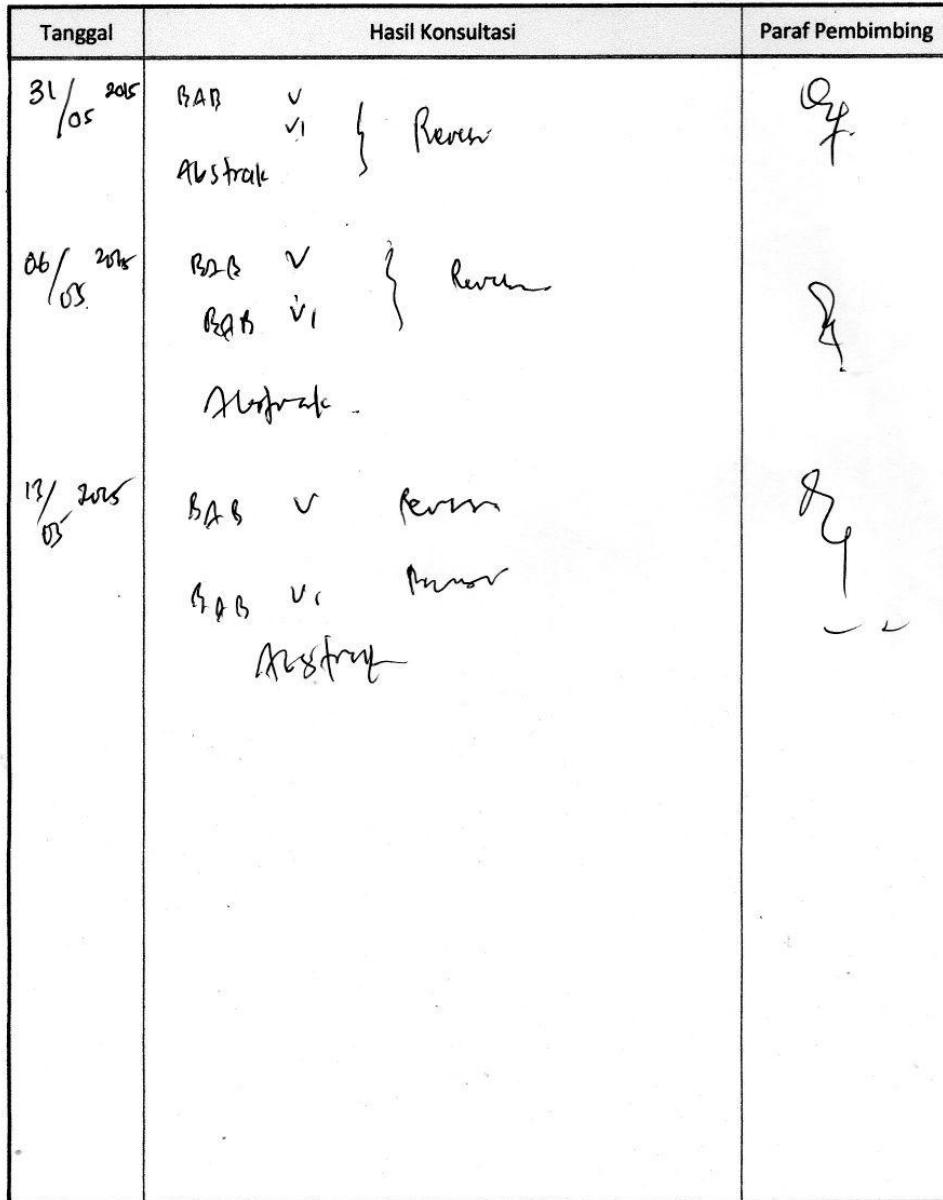 Tanggal Hasil Konsultasi Paraf Pembimbing
31/05 2015 BAB V
VI } Revisi
Abstrak
06/05 2015 BAB V } Revisi
BAB VI
Abstrak.
13/05 2015 BAB V Revisi
BAB VI Revisi
Abstrak